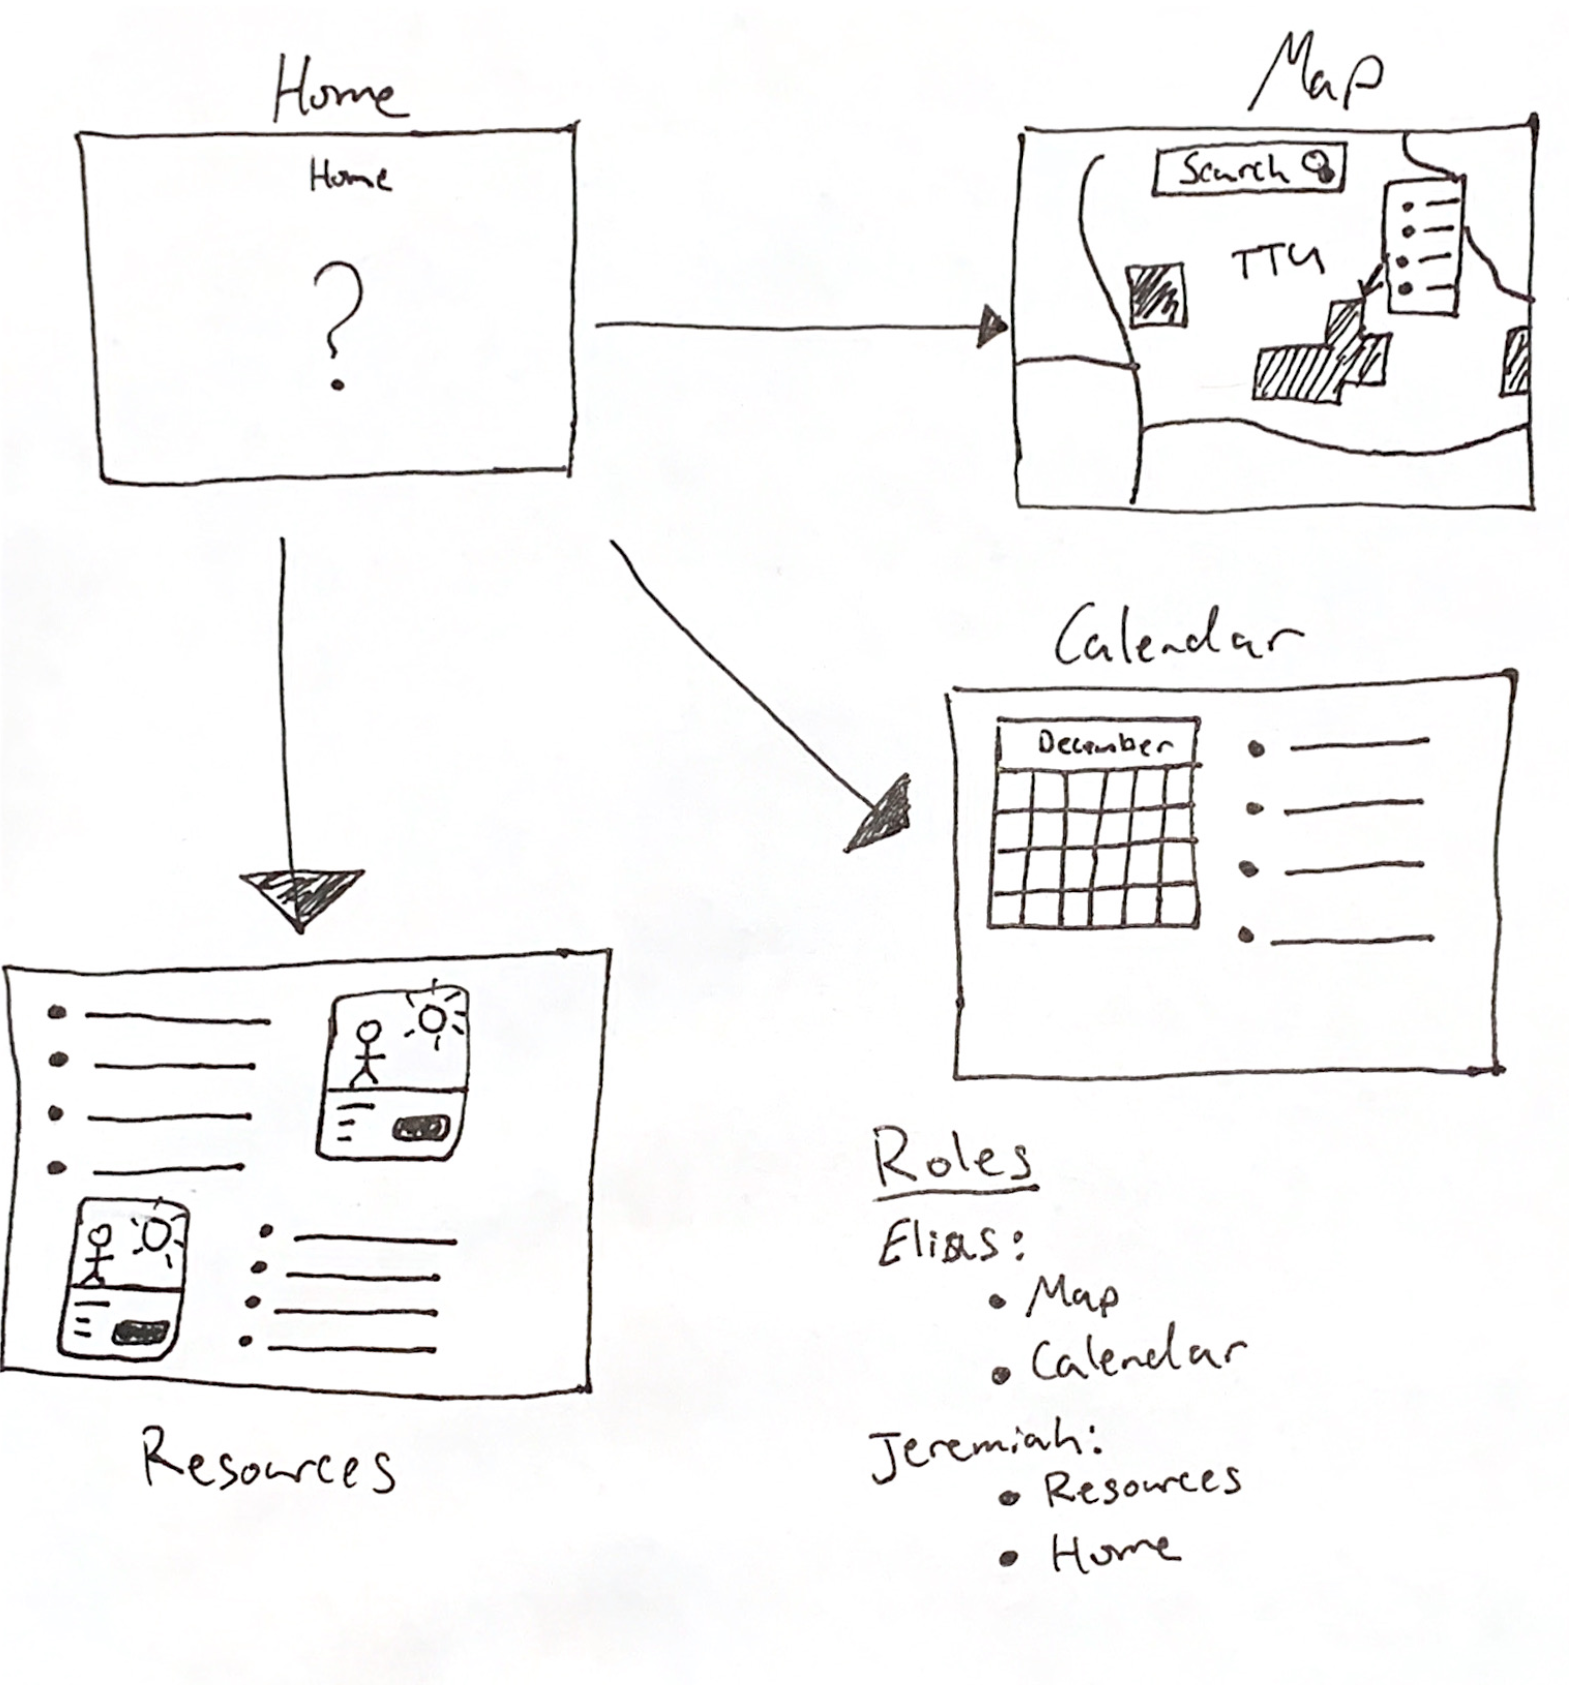 Home
Home
?
Map
Search
TTU
Calendar
December
Resources
Roles
Elias:
• Map
• Calendar
Jeremiah:
• Resources
• Home